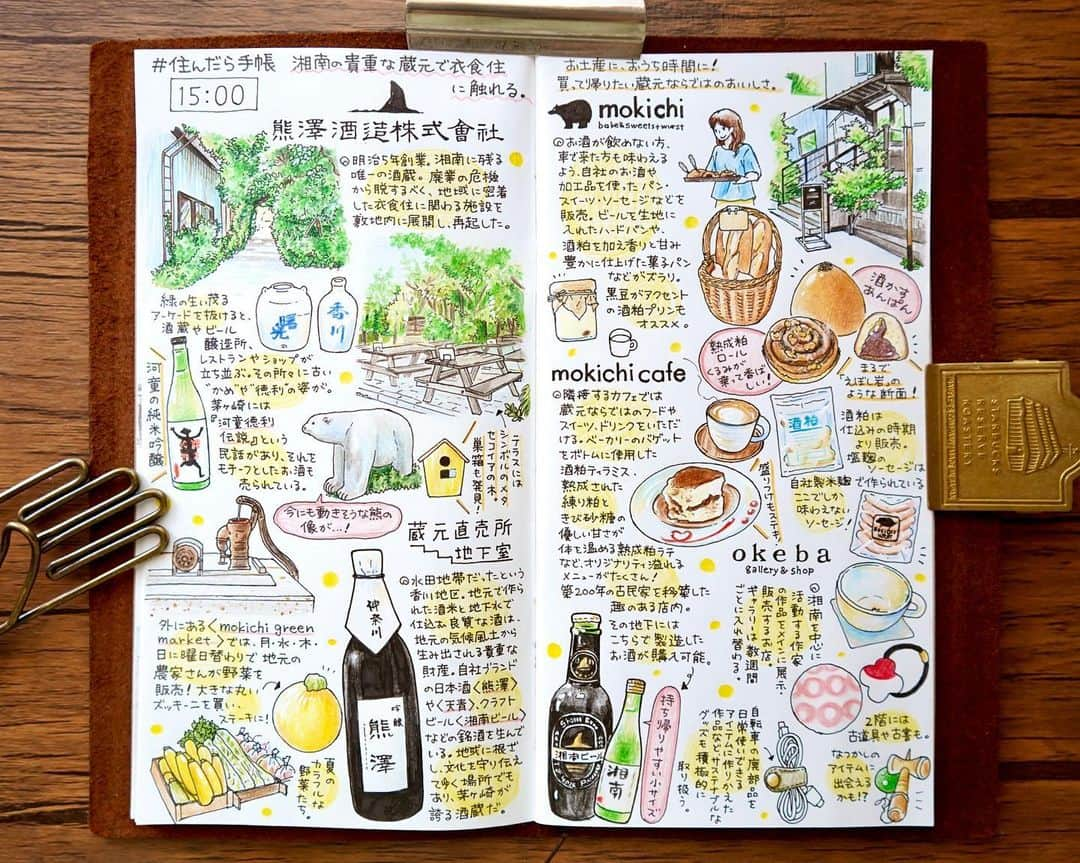 #住んだら手帳 湘南の貴重な蔵元で衣食住
に触れる。
15:00
熊澤酒造株式會社
◎明治5年創業。湘南に残る
唯一の酒蔵。廃業の危機
から脱するべく、地域に密着
した衣食住に関わる施設を
敷地内に展開し、再起した。
緑の生い茂る
アーケードを抜けると、
酒蔵やビール
醸造所、
レストランやショップが
立ち並ぶ。その所々に古い
"かめ"や"徳利"の姿が。
茅ヶ崎には
『河童徳利
伝説』という
民話があり、それを
モチーフとしたお酒も
売られている。
香川
河童の純米吟醸
テラスには
シンボルのメタ
セコイアの木。
巣箱も発見!
今にも動きそうな熊の
像が…!
蔵元直売所
地下室
◎水田地帯だったという
香川地区。地元で作ら
れた酒米と地下水で
仕込む良質な酒は、
地元の気候風土から
生み出される貴重な
財産。自社ブランド
の日本酒〈熊澤〉
や〈天青〉、クラフト
ビール〈湘南ビール〉
などの銘酒を生ん
でいる。地域に根ざ
し、文化を守り伝え
てゆく場所でも
あり、茅ヶ崎が
誇る酒蔵だ。
外にある〈mokichi green
market〉では、月・水・木・
日に曜日替わりで地元の
農家さんが野菜を
販売!大きな丸い
ズッキーニを買い、
ステーキに!
夏の
カラフルな
野菜たち。
神奈川
吟醸
熊澤
お土産に、おうち時間に!
買って帰りたい蔵元ならではのおいしさ。
mokichi
bake&sweets+wurst
◎お酒が飲めない方、
車で来た方も味わえる
よう、自社のお酒や
加工品を使ったパン・
スイーツ・ソーセージなどを
販売。ビールを生地に
入れたハードパンや、
酒粕を加え香りと甘み
豊かに仕上げた菓子パン
などがズラリ。
黒豆がアクセント
の酒粕プリンも
オススメ。
酒かす
あんぱん
熟成粕
ロール
くるみが
乗って香ば
しい!
まるで
"えぼし岩"の
ような断面!
mokichi cafe
◎隣接するカフェでは
蔵元ならではのフードや
スイーツ、ドリンクをいただ
ける。ベーカリーのバゲット
をボトムに使用した
酒粕ティラミス、
熟成された
練り粕と
きび砂糖の
優しい甘さが
体を温める熟成粕ラテ
など、オリジナリティ溢れる
メニューがたくさん!
築200年の古民家を移築した
趣のある店内。
その地下には
こちらで製造した
お酒が購入可能。
盛りつけもステキ
酒粕
酒粕は
仕込みの時期
より販売。
塩麹の
ソーセージは
自社製米麹で作られている
ここでしか
味わえない
ソーセージ!
okeba
gallery & shop
◎湘南を中心に
活動する作家
の作品をメインに展示・
販売するお店。
ギャラリーは数週間
ごとに入れ替わる。
湘南ビール
湘南
持ち帰りやすい小サイズ
自転車の廃部品を
日常使いできる
アイテムに作りかえた
作品など、サステナブルな
グッズも積極的に
取り扱う。
2階には
古道具や古書も。
なつかしの
アイテムに
出会える
かも!?